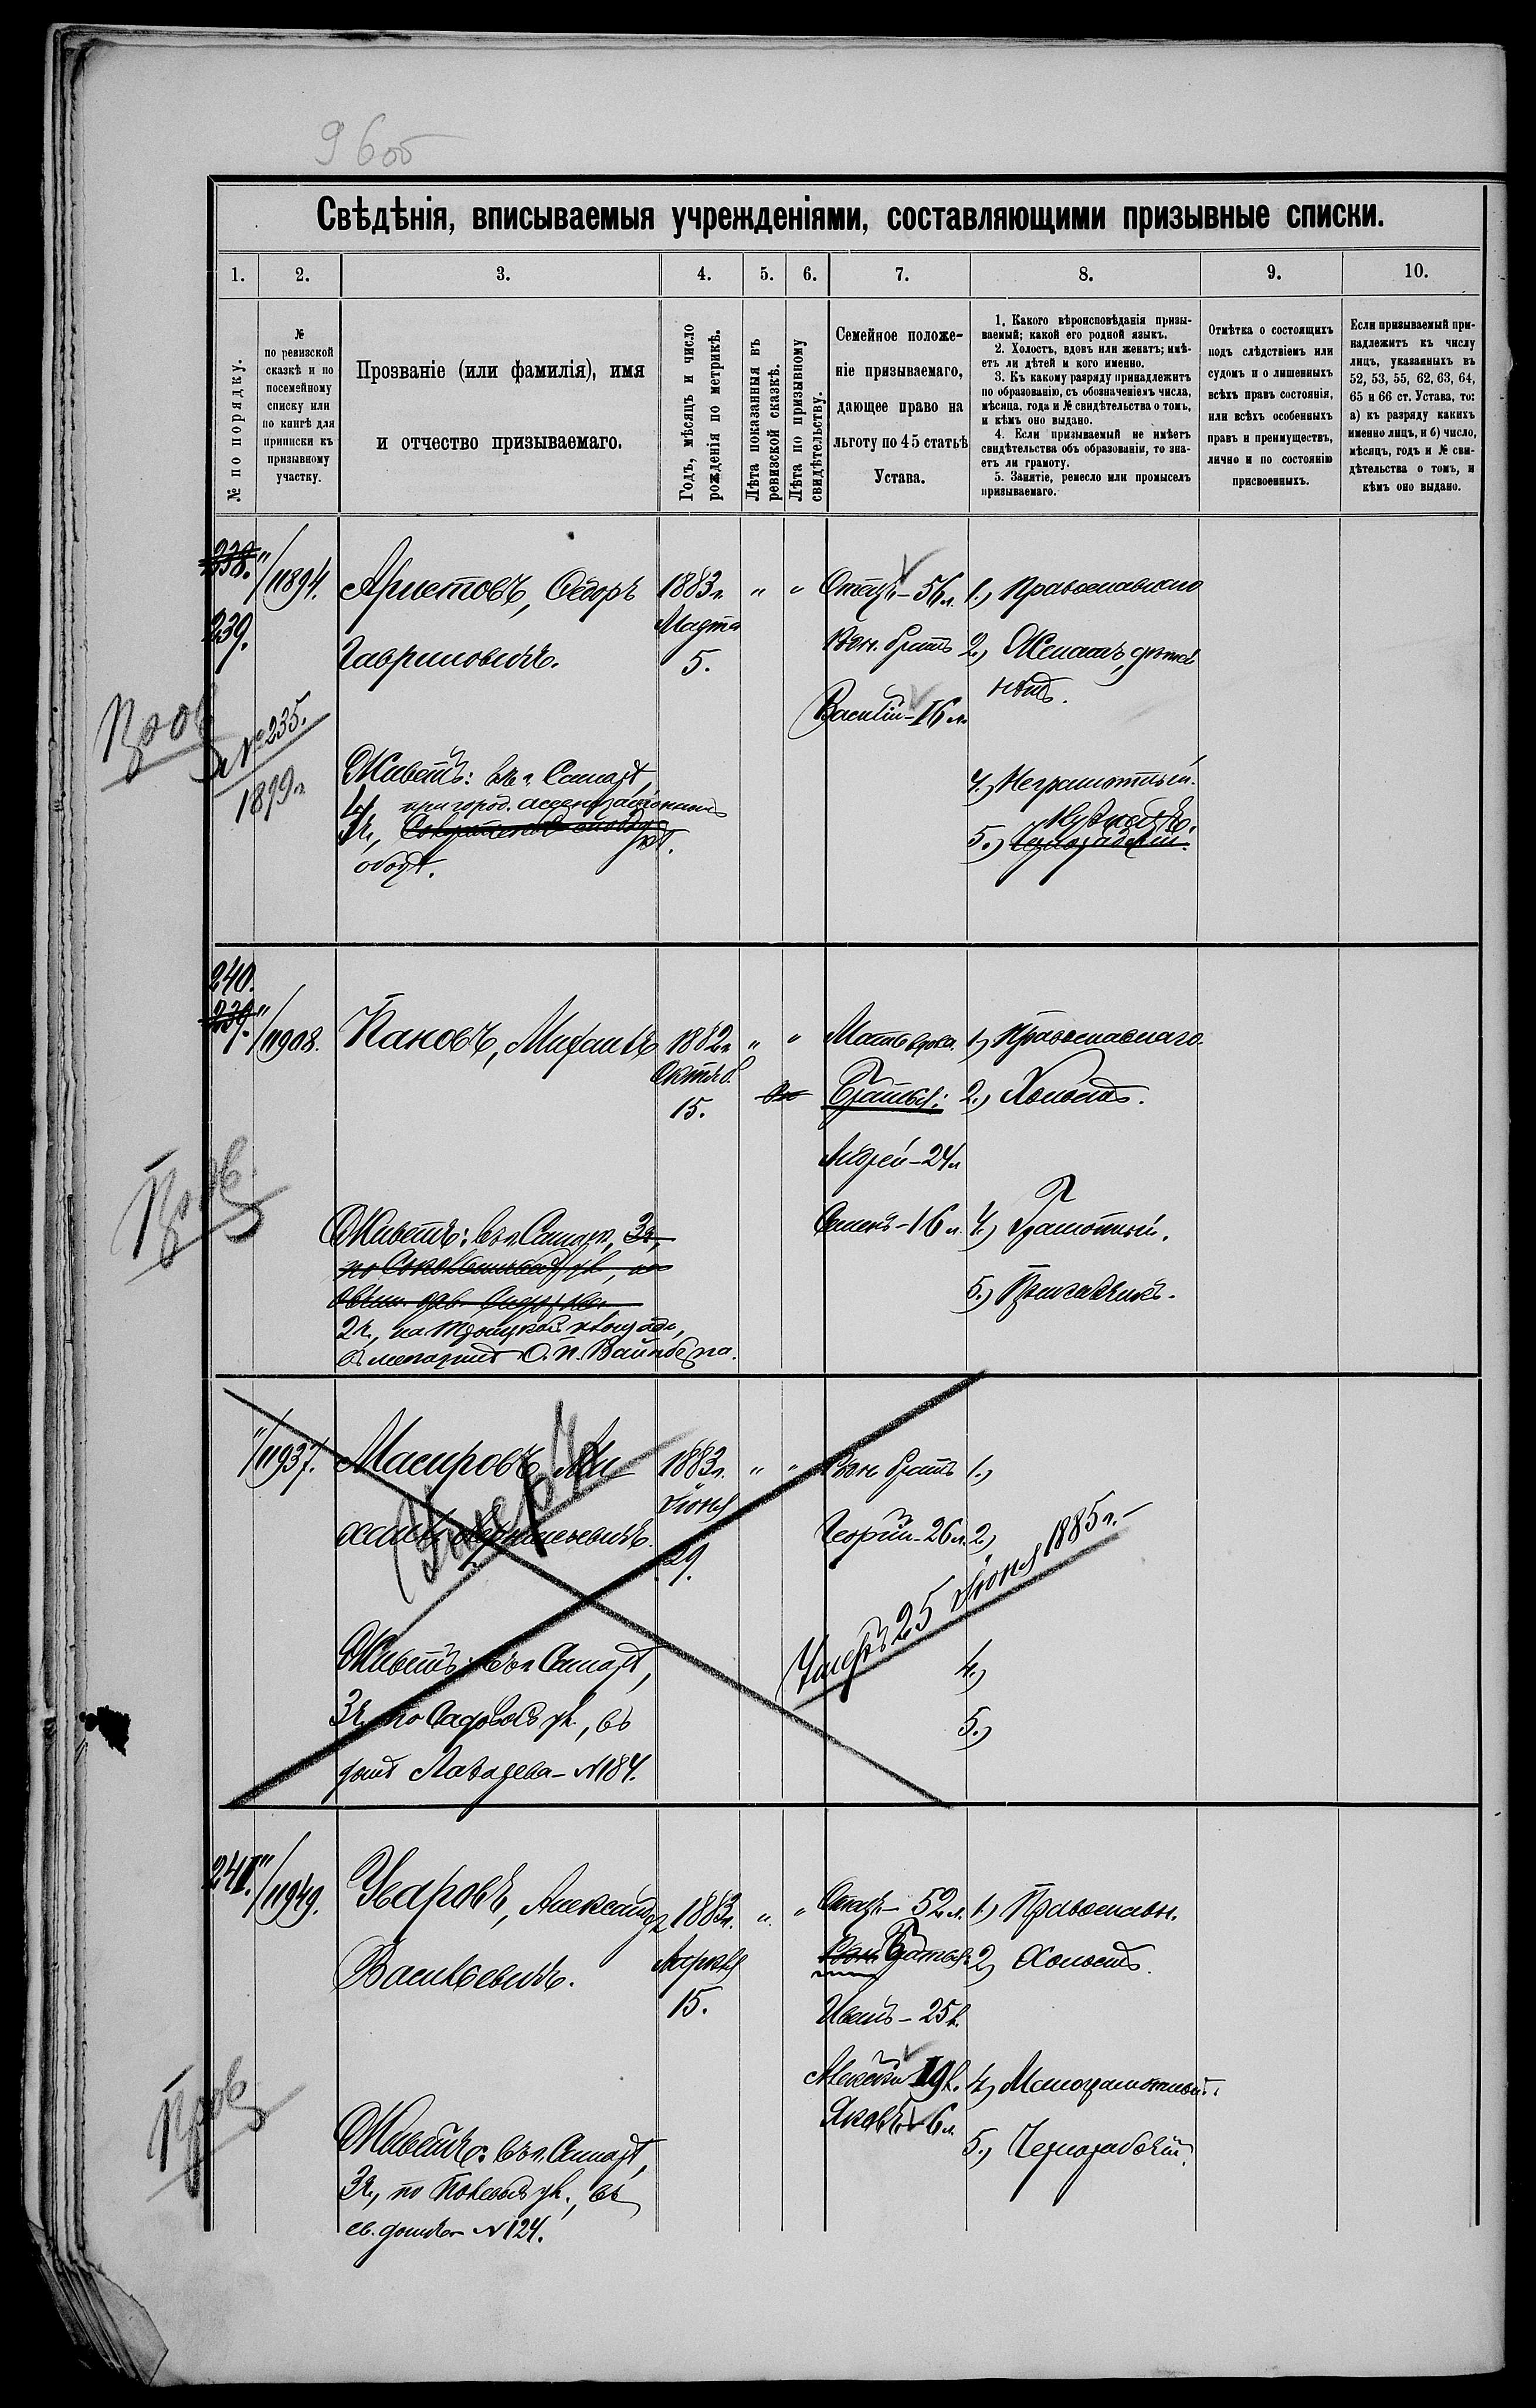 9 6об
Свѣдѣнія, вписываемыя учрежденіями, составляющими призывные списки.
1. 2. 3. 4. 5. 6. 7. 8. 9. 10.
№ по порядку.
№
по ревизской
сказкѣ и по
посемейному
списку или
по книгѣ для
приписки къ
призывному
участку.
Прозваніе (или фамилія), имя
и отчество призываемаго.
Годъ, мѣсяцъ и число
рожденія по метрикѣ.
Лѣта показанныя въ
ревизской сказкѣ.
Лѣта по призывному
свидѣтельству.
Семейное положе-
ніе призываемаго,
дающее право на
льготу по 45 статьѣ
Устава.
1. Какого вѣроисповѣданія призы-
ваемый; какой его родной языкъ.
2. Холостъ, вдовъ или женатъ; имѣ-
етъ ли дѣтей и кого именно.
3. Къ какому разряду принадлежитъ
по образованію, съ обозначеніемъ числа,
мѣсяца, года и № свидѣтельства о томъ,
и кѣмъ оно выдано.
4. Если призываемый не имѣетъ
свидѣтельства объ образованіи, то зна-
етъ ли грамоту.
5. Занятіе, ремесло или промыселъ
призываемаго.
Отмѣтка о состоящихъ
подъ слѣдствіемъ или
судомъ и о лишенныхъ
всѣхъ правъ состоянія,
или всѣхъ особенныхъ
правъ и преимуществъ,
лично и по состоянію
присвоенныхъ.
Если призываемый при-
надлежитъ къ числу
лицъ, указанныхъ въ
52, 53, 55, 62, 63, 64,
65 и 66 ст. Устава, то:
а) къ разряду какихъ
именно лицъ, и б) число,
мѣсяцъ, годъ и № сви-
дѣтельства о томъ, и
кѣмъ оно выдано.
238. "/11894. Аристовъ, Ѳедоръ 1883 г. " " Отецъ - 56 л. 1.) Православнаго
239. Гавриловичъ. Марта 5. Род. братъ 2.) Женатъ, дѣтей
нѣтъ.
Василій - 16 л.
Пров
№ 235.
1899 г.
Живетъ: въ г. Самарѣ,
при город. ассенизаціонномъ
обозѣ.
4.) Неграмотный.
5.) Чернорабочій.
240.
239. "/11908. Пановъ, Михаилъ 1882 г. " " Мать вдова. 1.) Православнаго.
Октяб. 15. Братья: 2.) Холостъ.
Андрей - 24 л.
Пров
Живетъ: въ г. Самарѣ, 3 ч., Семенъ - 16 л. 4.) Грамотный.
5.) Прикащикъ.
2 ч., на Троицкой площади,
въ магазинѣ О. П. Вайнберга.
"/11937. Масировъ 1883 г. " " Род. братъ 1.)
Іюня 29. Георгій - 26 л. 2.)
Умеръ
Умеръ 25 Іюня 1885 г. -
Живетъ: въ г. Самарѣ, 4.)
3 ч., по Садовой ул., въ 5.)
домѣ Лаврова - № 184.
241. "/11949. Уваровъ, Александръ 1883 г. " " Отецъ - 52 л. 1.) Православн.
Васильевичъ. Апрѣля 15. Братья 2.) Холостъ.
Иванъ - 25 л.
Алексѣй 19 л. 4.) Малограмотный.
Яковъ - 6 л. 5.) Чернорабочій.
Пров
Живетъ: въ г. Самарѣ,
3 ч., по Полевой ул., въ
св. домѣ № 124.